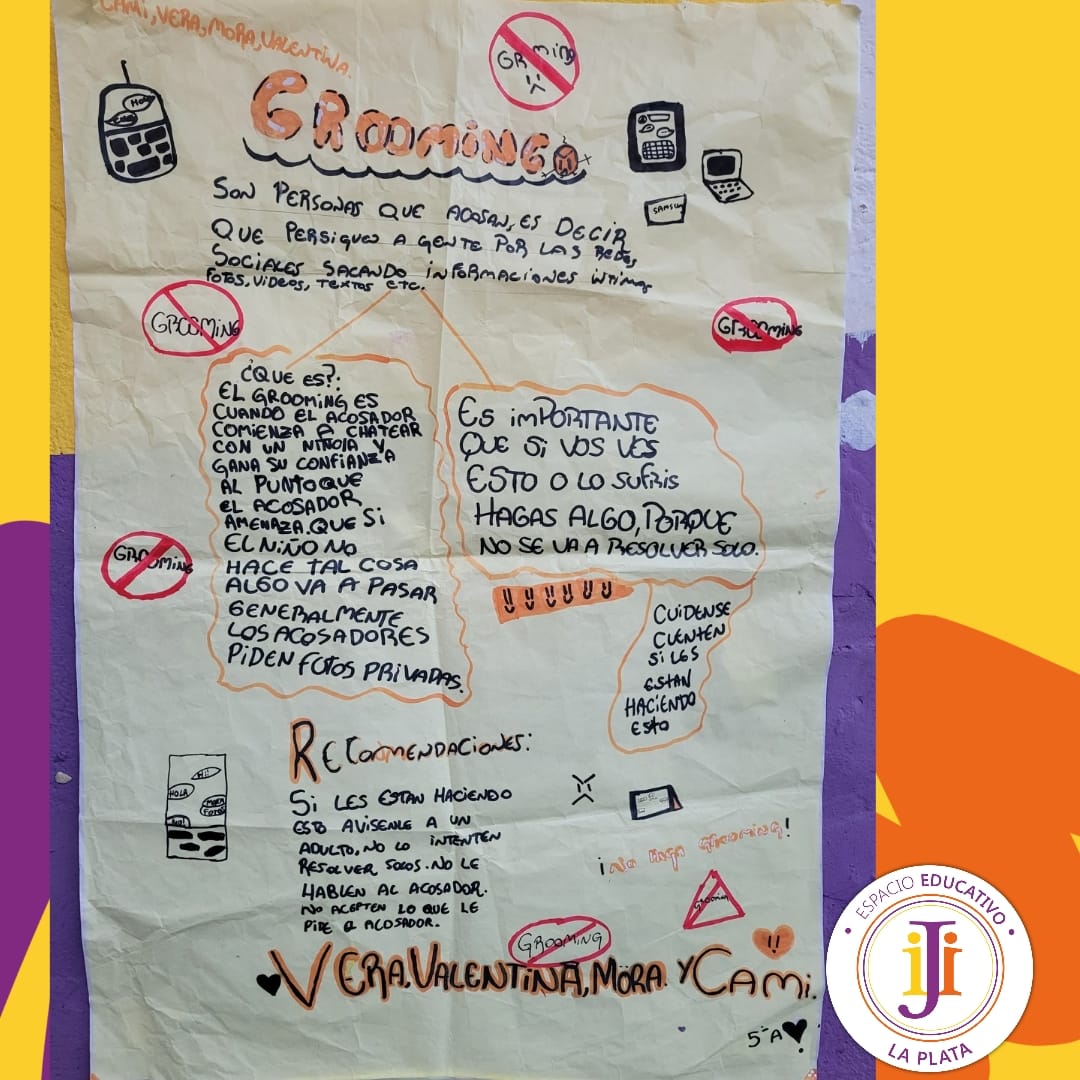 CAMI, VERA, MORA, VALENTINA.
GROOMING
GROOMING
HOLA
SAMSUNG
SON PERSONAS QUE ACOSAN, ES DECIR
QUE PERSIGUEN A GENTE POR LAS REDES
SOCIALES SACANDO INFORMACIONES INTIMAS
FOTOS, VIDEOS, TEXTOS ETC.
GROOMING
GROOMING
¿QUE ES?:
EL GROOMING ES
CUANDO EL ACOSADOR
COMIENZA A CHATEAR
CON UN NIÑO/A Y
GANA SU CONFIANZA
AL PUNTO QUE
EL ACOSADOR
AMENAZA. QUE SI
EL NIÑO NO
HACE TAL COSA
ALGO VA A PASAR
GENERALMENTE
LOS ACOSADORES
PIDEN FOTOS PRIVADAS.
ES IMPORTANTE
QUE SI VOS VES
ESTO O LO SUFRIS
HAGAS ALGO, PORQUE
NO SE VA A RESOLVER SOLO.
GROOMING
!! !! !! !! !! !!
CUIDENSE
CUENTEN
SI LES
ESTAN
HACIENDO
ESTO
RECOMENDACIONES:
SI LES ESTAN HACIENDO
ESTO AVISENLE A UN
ADULTO, NO LO INTENTEN
RESOLVER SOLOS. NO LE
HABLEN AL ACOSADOR.
NO ACEPTEN LO QUE LE
PIDE EL ACOSADOR.
HI!
HOLA
¡NO HAGA GROOMING!
GROOMING
GROOMING
!!
VERA, VALENTINA, MORA. Y CAMI.
5ºA
ESPACIO EDUCATIVO
iJi
LA PLATA